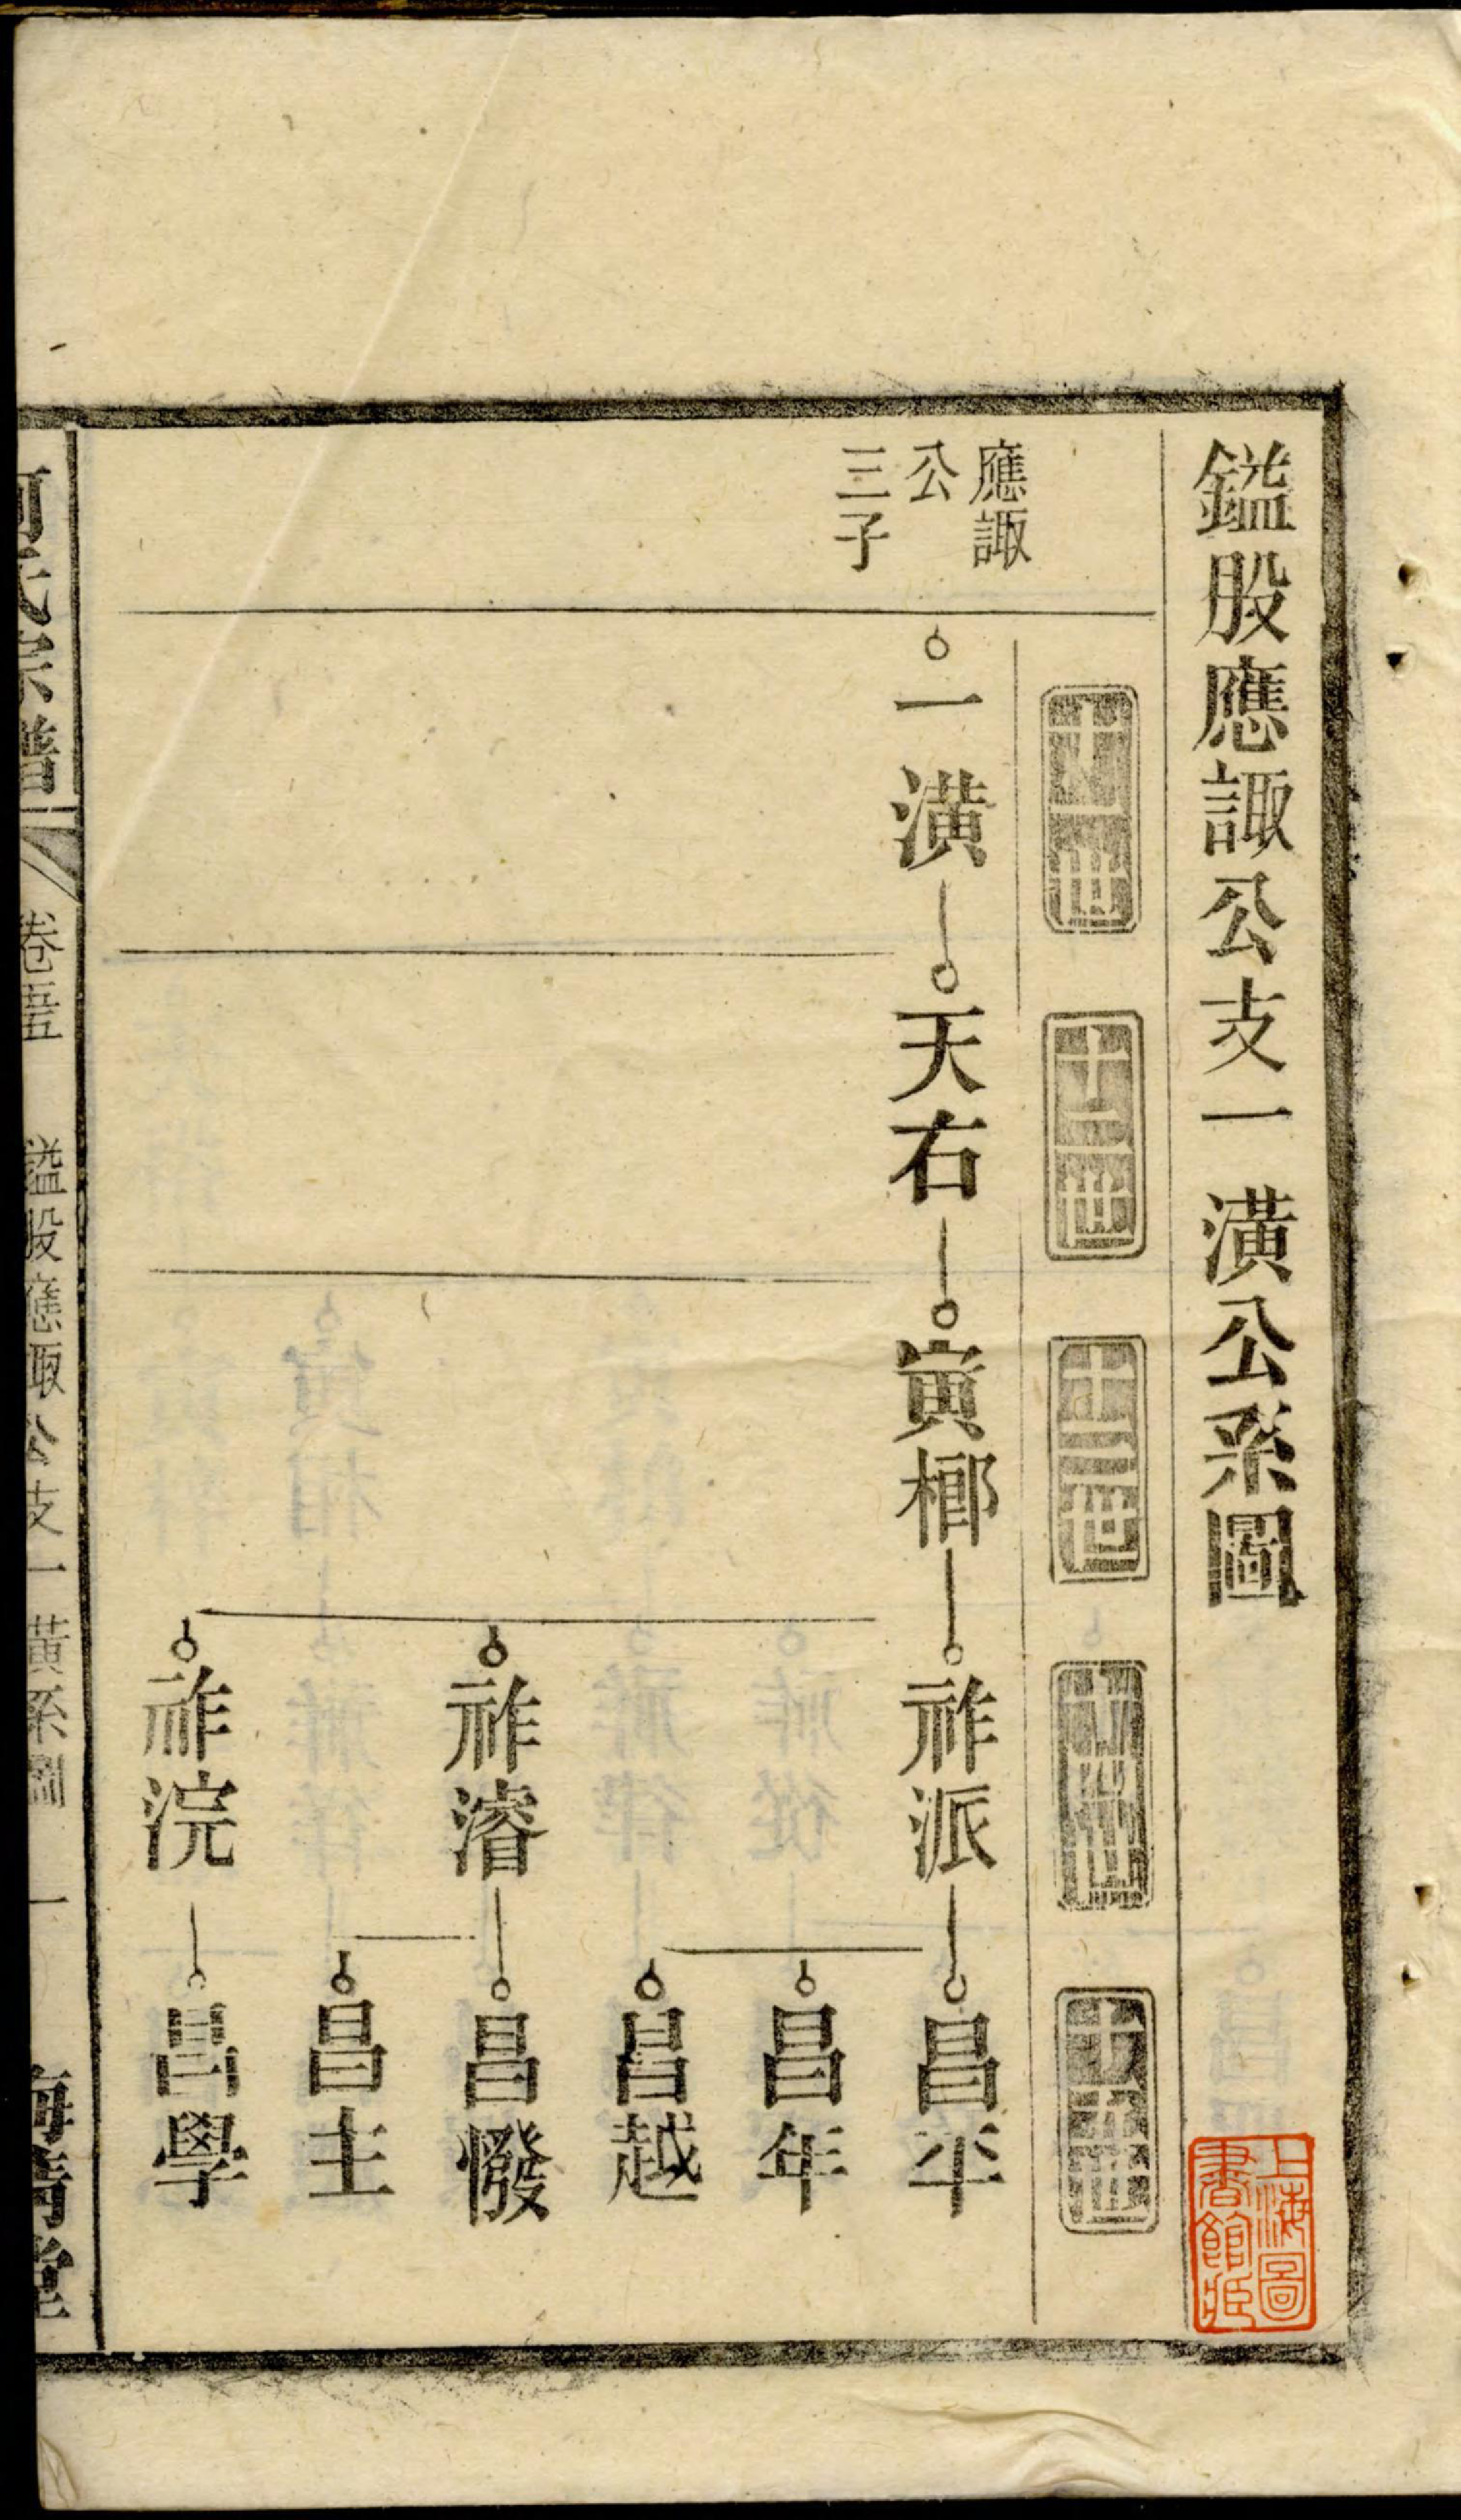 鎰股應諏公支一潢公系圖
上海圖
書館藏
十一世
十二世
十三世
十四世
十五世
應諏
公
三子
一潢
天右
寅榔
祚派
昌平
昌年
昌越
祚濬
昌憿
昌主
祚浣
昌學
何氏宗譜
卷五
鎰股應諏公支一黃系圖
一